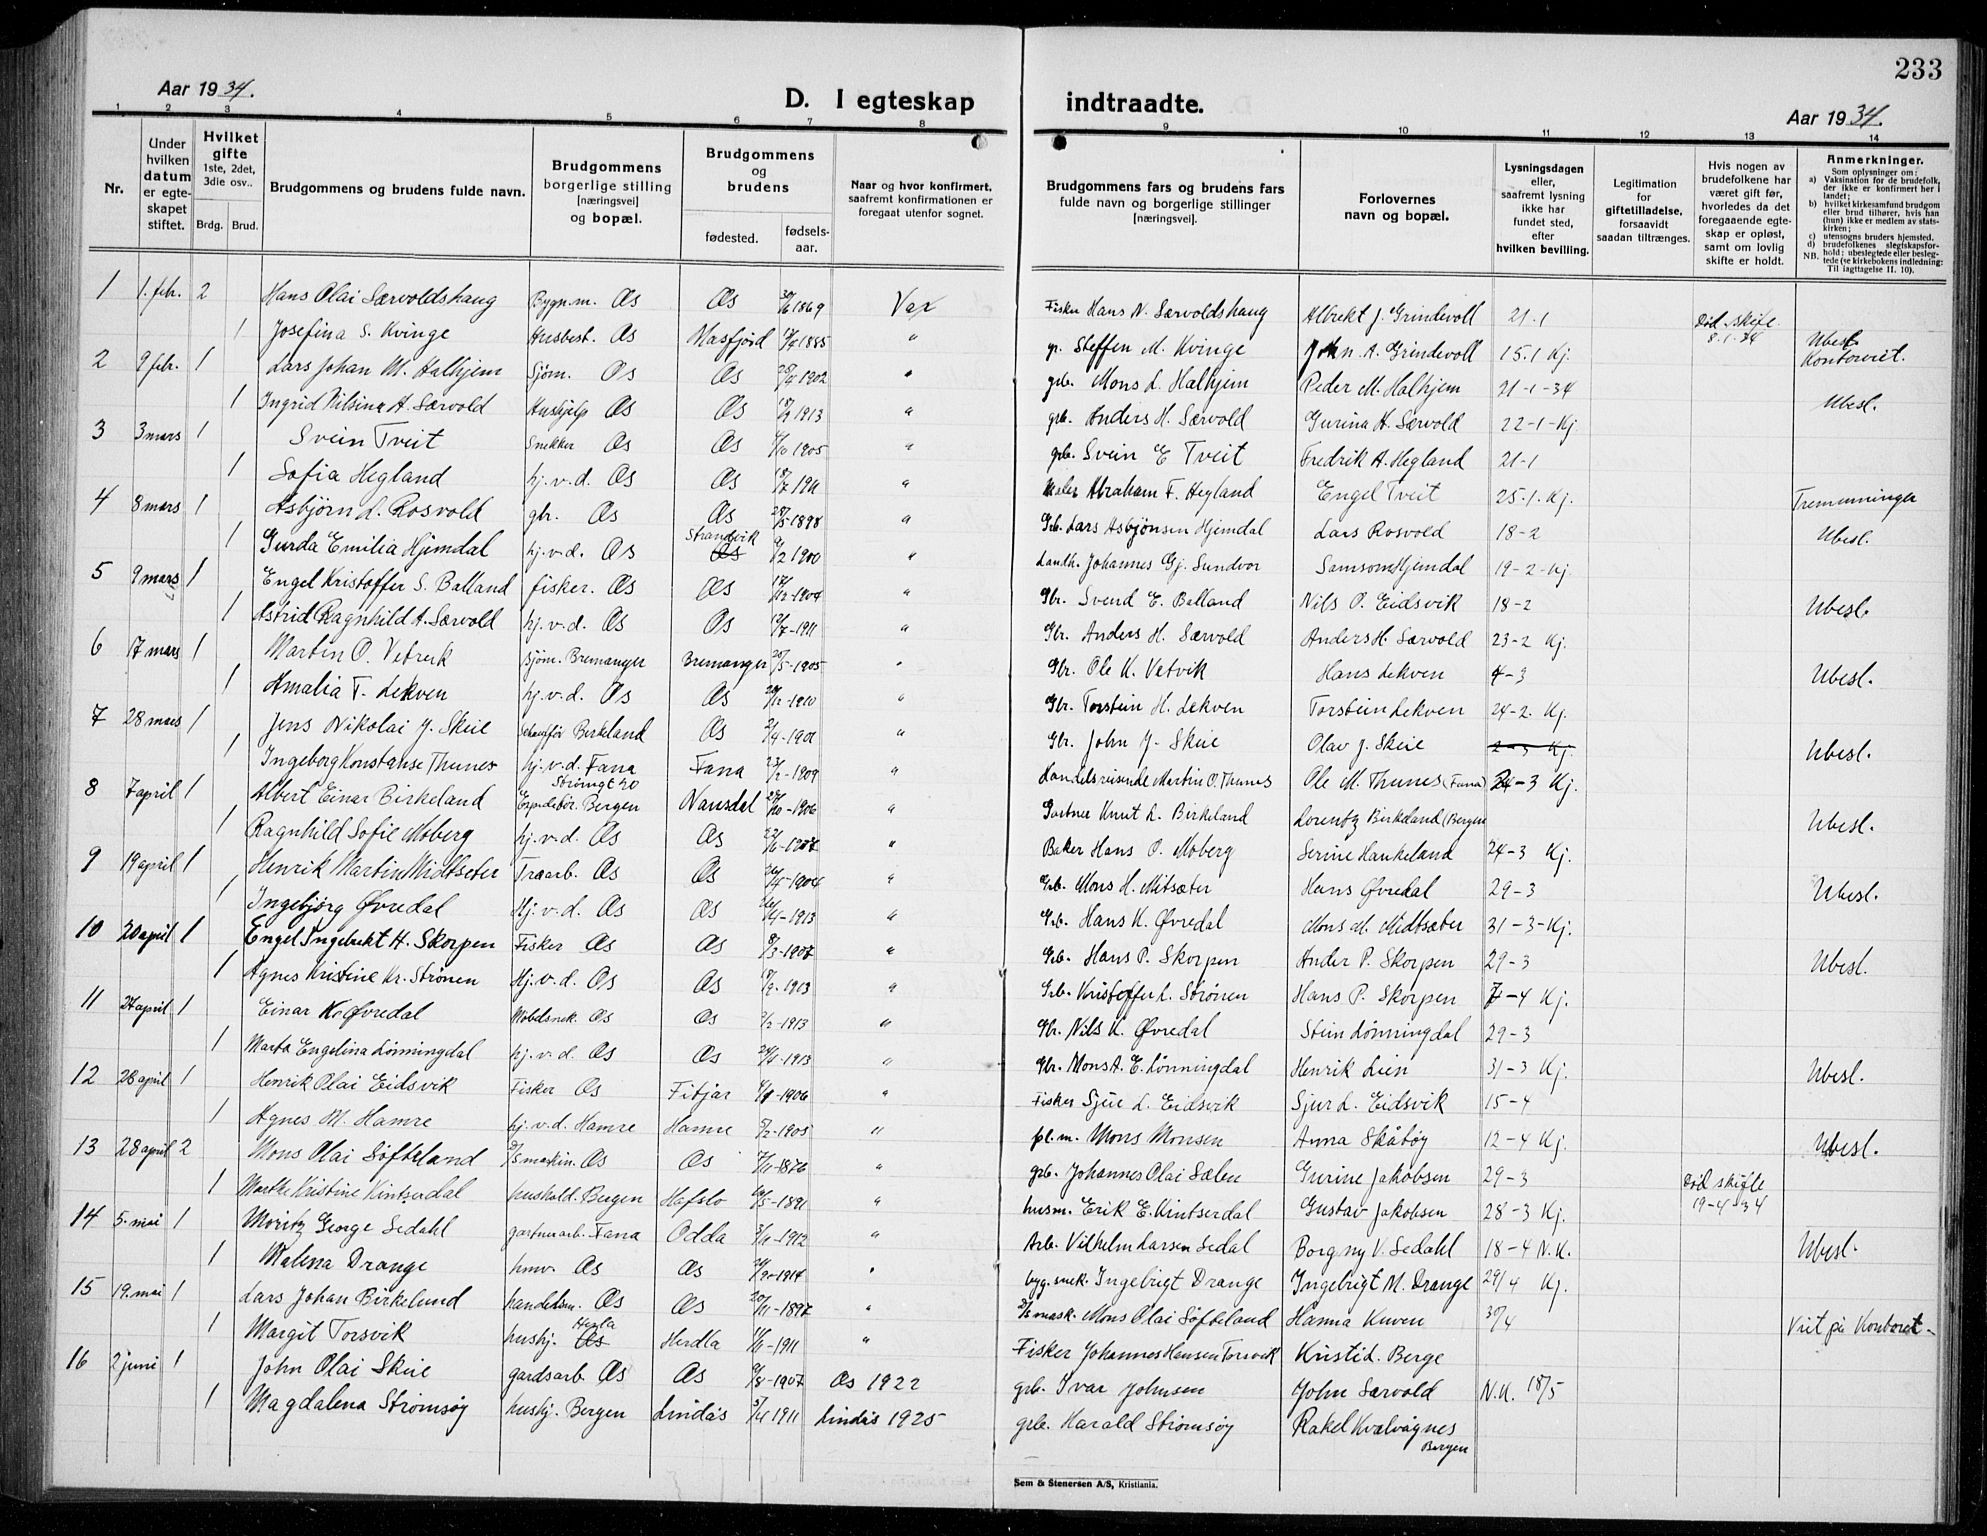 233
Aar 1934.
D. I egteskap indtraadte.
Aar 1934.
1 2 3 4 5 6 7 8 9 10 11 12 13 14
Nr.
Under hvilken datum er egte-skapet stiftet.
Hvilket gifte 1ste, 2det, 3die osv..
Brdg. Brud.
Brudgommens og brudens fulde navn.
Brudgommens borgerlige stilling [næringsvei] og bopæl.
Brudgommens og brudens
fødested. fødsels-aar.
Naar og hvor konfirmert, saafremt konfirmationen er foregaat utenfor sognet.
Brudgommens fars og brudens fars fulde navn og borgerlige stillinger [næringsvei].
Forlovernes navn og bopæl.
Lysningsdagen eller, saafremt lysning ikke har fundet sted, efter hvilken bevilling.
Legitimation for giftetilladelse, forsaavidt saadan tiltrænges.
Hvis nogen av brudefolkene har været gift før, hvorledes da det foregaaende egte-skap er opløst, samt om lovlig skifte er holdt.
Anmerkninger.
Som oplysninger om:
a) Vaksination for de brudefolk, der ikke er konfirmert her i landet;
b) hvilket kirkesamfund brudgom eller brud tilhører, hvis han (hun) ikke er medlem av stats-kirken;
c) utensogns bruders hjemsted.
d) brudefolkenes slegtskapsfor-hold: ubeslegtede eller besleg-tede (se kirkebokens indledning:
NB. Til iagttagelse II. 10).
1 1. febr. 2 Hans Olai Særvoldshaug Bygn.m. Os Os 30/6 1869 Vax Fisker Hans N. Særvoldshaug Albrekt J. Grindevoll 21-1 Død. skifte 8-1-34
1 Josefina S. Kvinge Husbest. Os Masfjord 1885 " gr. Steffen M. Kvinge John A. Grindevoll 15.1 Kj. Ubesl. Kontoret.
2 9 febr. 1 Lars Johan M. Halhjem Sjøm. Os Os 1902 " grb. Mons L. Halhjem Peder M. Halhjem 21-1-34
1 Ingrid Nilsina A. Særvold Hushjelp Os Os 1913 " grb. Anders H. Særvold Gurina H. Særvold 22-1-Kj Ubesl.
3 3 mars 1 Svein Tveit Snekker Os Os 1905 " grb. Svein E Tveit Fredrik A. Hegland 21-1
1 Sofia Hegland hj.v.d. Os Os 1911 " Maler Abraham F. Hegland Engel Tveit 25-1. Kj. Tremenninger
4 8 mars 1 Asbjørn L. Rosvold gbr. Os Os 1898 " Grb. Lars Asbjønsen Hjemdal Lars Rosvold 18-2 Ubesl.
1 Gurda Emilia Hjemdal hj.v.d. Os Strandvik Os 1900 " Landh. Johannes Gj. Sundvor Samson Hjemdal 19-2-Kj.
5 9 mars 1 Engel Kristoffer S. Balland fisker. Os Os 1904 " Gbr. Svend E. Balland Nils O. Eidsvik 18-2 Ubesl.
1 Astrid Ragnhild A. Særvold hj.v.d. Os Os 1911 " Gbr. Anders H. Særvold Anders H Særvold 23-2 Kj.
6 17 mars 1 Martin O. Vetvik sjøm. Bremanger Bremanger 20/5-1905 " Gbr. Ole K. Vetvik Hans Lekven 4-3 Ubesl.
1 Amalia T. Lekven hj.v.d. Os Os 1910 " Gbr. Torstein H. Lekven Torstein Lekven 24-2. Kj.
7 28 mars 1 Jens Nikolai J. Skeie schauffør Birkeland Os 2/4-1901 " Gbr. John J. Skeie Olav J. Skeie 2-3 Kj. Ubesl.
1 Ingeborg Konstanse Thunes hj.v.d. Fana Fana 1909 " Handelsreisende Martin O. Thunes Ole M. Thunes (Fana) 24-3 Kj.
8 7 april 1 Albert Einar Birkeland Strømgt 20 Bergen Nansdal 1906 " Gartner Knut L. Birkeland Lorentz Birkeland (Bergen Ubesl.
1 Ragnhild Sofie Moberg hj.v.d. Os Os 1907 " Baker Hans O. Moberg Serine Haukeland 24-3 Kj.
9 19 april 1 Henrik Martin Midtseter Traarb. Os Os 26/4-1904 " Grb. Mons H. Mitsæter Hans Øvredal 29-3 Ubesl.
1 Ingebjørg Øvredal Hj.v.d. Os Os 1913 " Grb. Hans K. Øvredal Mons M. Midtsæter 31-3-Kj.
10 20 april 1 Engel Ingebrekt H. Skorpen Fisker Os Os 9/3-1907 " Grb. Hans P. Skorpen Ander P. Skorpen 29-3 Ubesl.
1 Agnes Kristine Kr. Strønen Hj.v.d. Os Os 1913 " Grb. Kristoffer L. Strønen Hans P. Skorpen 7-4 Kj.
11 27 april 1 Einar K. Øvredal Møbelsnek. Os Os 1913 " Gbr. Nils K. Øvredal Stein Lønningdal 29-3
1 Marta Engelina Lønningdal hj.v.d. Os Os 1913 " Gbr. Mons A. E. Lønningdal Henrik Lien 31-3 Kj. Ubesl.
12 28 april 1 Henrik Olai Eidsvik Fisker Os Fitjar 1906 " Fisker Sjur L. Eidsvik Sjur L. Eidsvik 15-4
1 Agnes M. Hamre hj.v.d. Hamre Hamre 1905 " pl.m. Mons Monsen Anna Skåtøy 12-4 Kj. Ubesl.
13 28 april 2 Mons Olai Søfteland D/S maskin. Os Os 1876 " grb. Johannes Olai Sælen Gurine Jakobsen 29-3 Død skifte 19-4 34
1 Marthe Kristine Kintserdal hushold. Bergen Hafslo 1891 " husm. Erik E. Kintserdal Gustav Jakobsen 28-3 Kj.
14 5. mai 1 Moritz George Sedahl gartnerarb. Fana Odda 1912 " Arb. Vilhelm Larsen Sedal Borgny V. Sedahl 18-4 N.K. Ubesl.
1 Malena Drange hmv. Os Os 1914 " byg. snek. Ingebrigt Drange Ingebrigt M. Drange 29/4 Kj.
15 19. mai 1 Lars Johan Birkelund handelsm. Os Os 20/11-1897 " D/S mask. Mons Olai Søfteland Hanna Kuven 30/4 Viet på Kontoret-
1 Margit Torsvik hushj. Herla Os Herdla 1911 " Fisker Johannes Hansen Torsvik Kristi L. Berge
16 2 juni 1 John Olai Skeie gardsarb. Os Os 9/8-1907 Os 1922 grb. Ivar Johnsen John Særvold N.K. 18/5
1 Magdalena Stromsøy hushj. Bergen Lindås 1911 Lindås 1925 grb. Harald Stromsøy Rakel Kvalvågnes Bergen
Sem & Stenersen A/S, Kristiania.